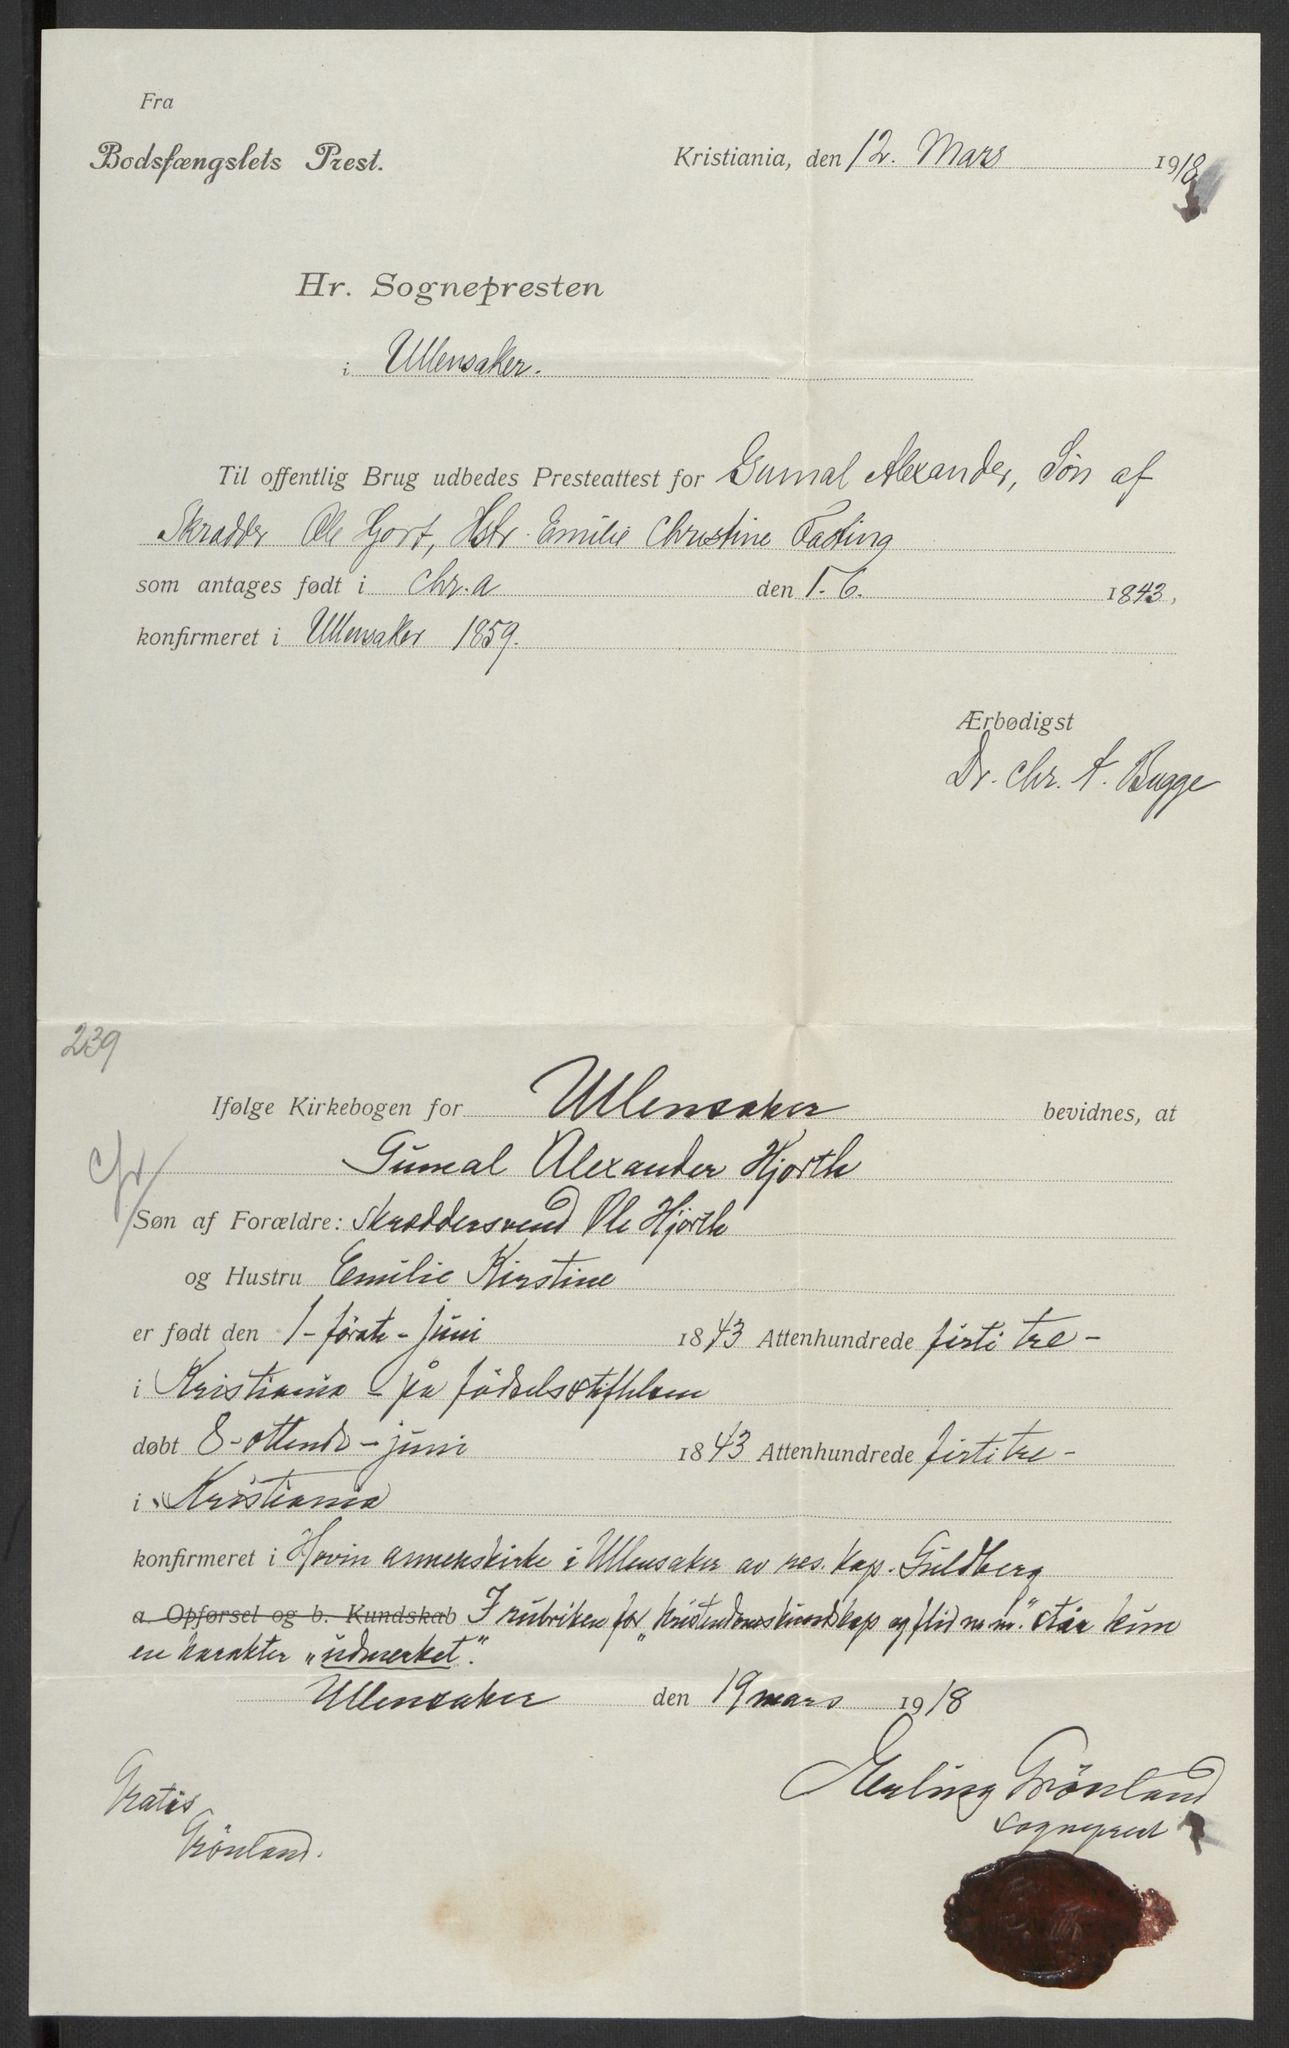 Fra
Bodsfængslets Prest.
Kristiania, den 12. Mars 1918
Hr. Sognepresten
i Ullensaker.
Til offentlig Brug udbedes Presteattest for Gumal Alexander, Søn af
Skrædder Ole Hjort, Hstr. Emilie Christine Fasting
som antages født i Chr.a den 1. 6. 1843,
konfirmeret i Ullensaker 1859.
Ærbødigst
Dr. Chr. A. Bugge
239
Ifølge Kirkebogen for Ullensaker bevidnes, at
Gumal Alexander Hjorth
Søn af Forældre: Skræddersvend Ole Hjorth
og Hustru Emilie Kirstine
er født den 1 - første - juni 1843 Attenhundrede firti tre -
i Kristiania - på fødselsstiftelsen
døbt 8 - ottende - juni 1843 Attenhundrede firti tre -
i Kristiania
konfirmeret i Hovin annekskirke i Ullensaker av res. kap. Guldberg
a. Opførsel og b. Kundskab I rubriken for „kristendomskundskap og flid m. m." står kun
en karakter „udmerket".
Ullensaker den 19 mars 1918
Erling Grönland
sogneprest
Gratis
Grönland.